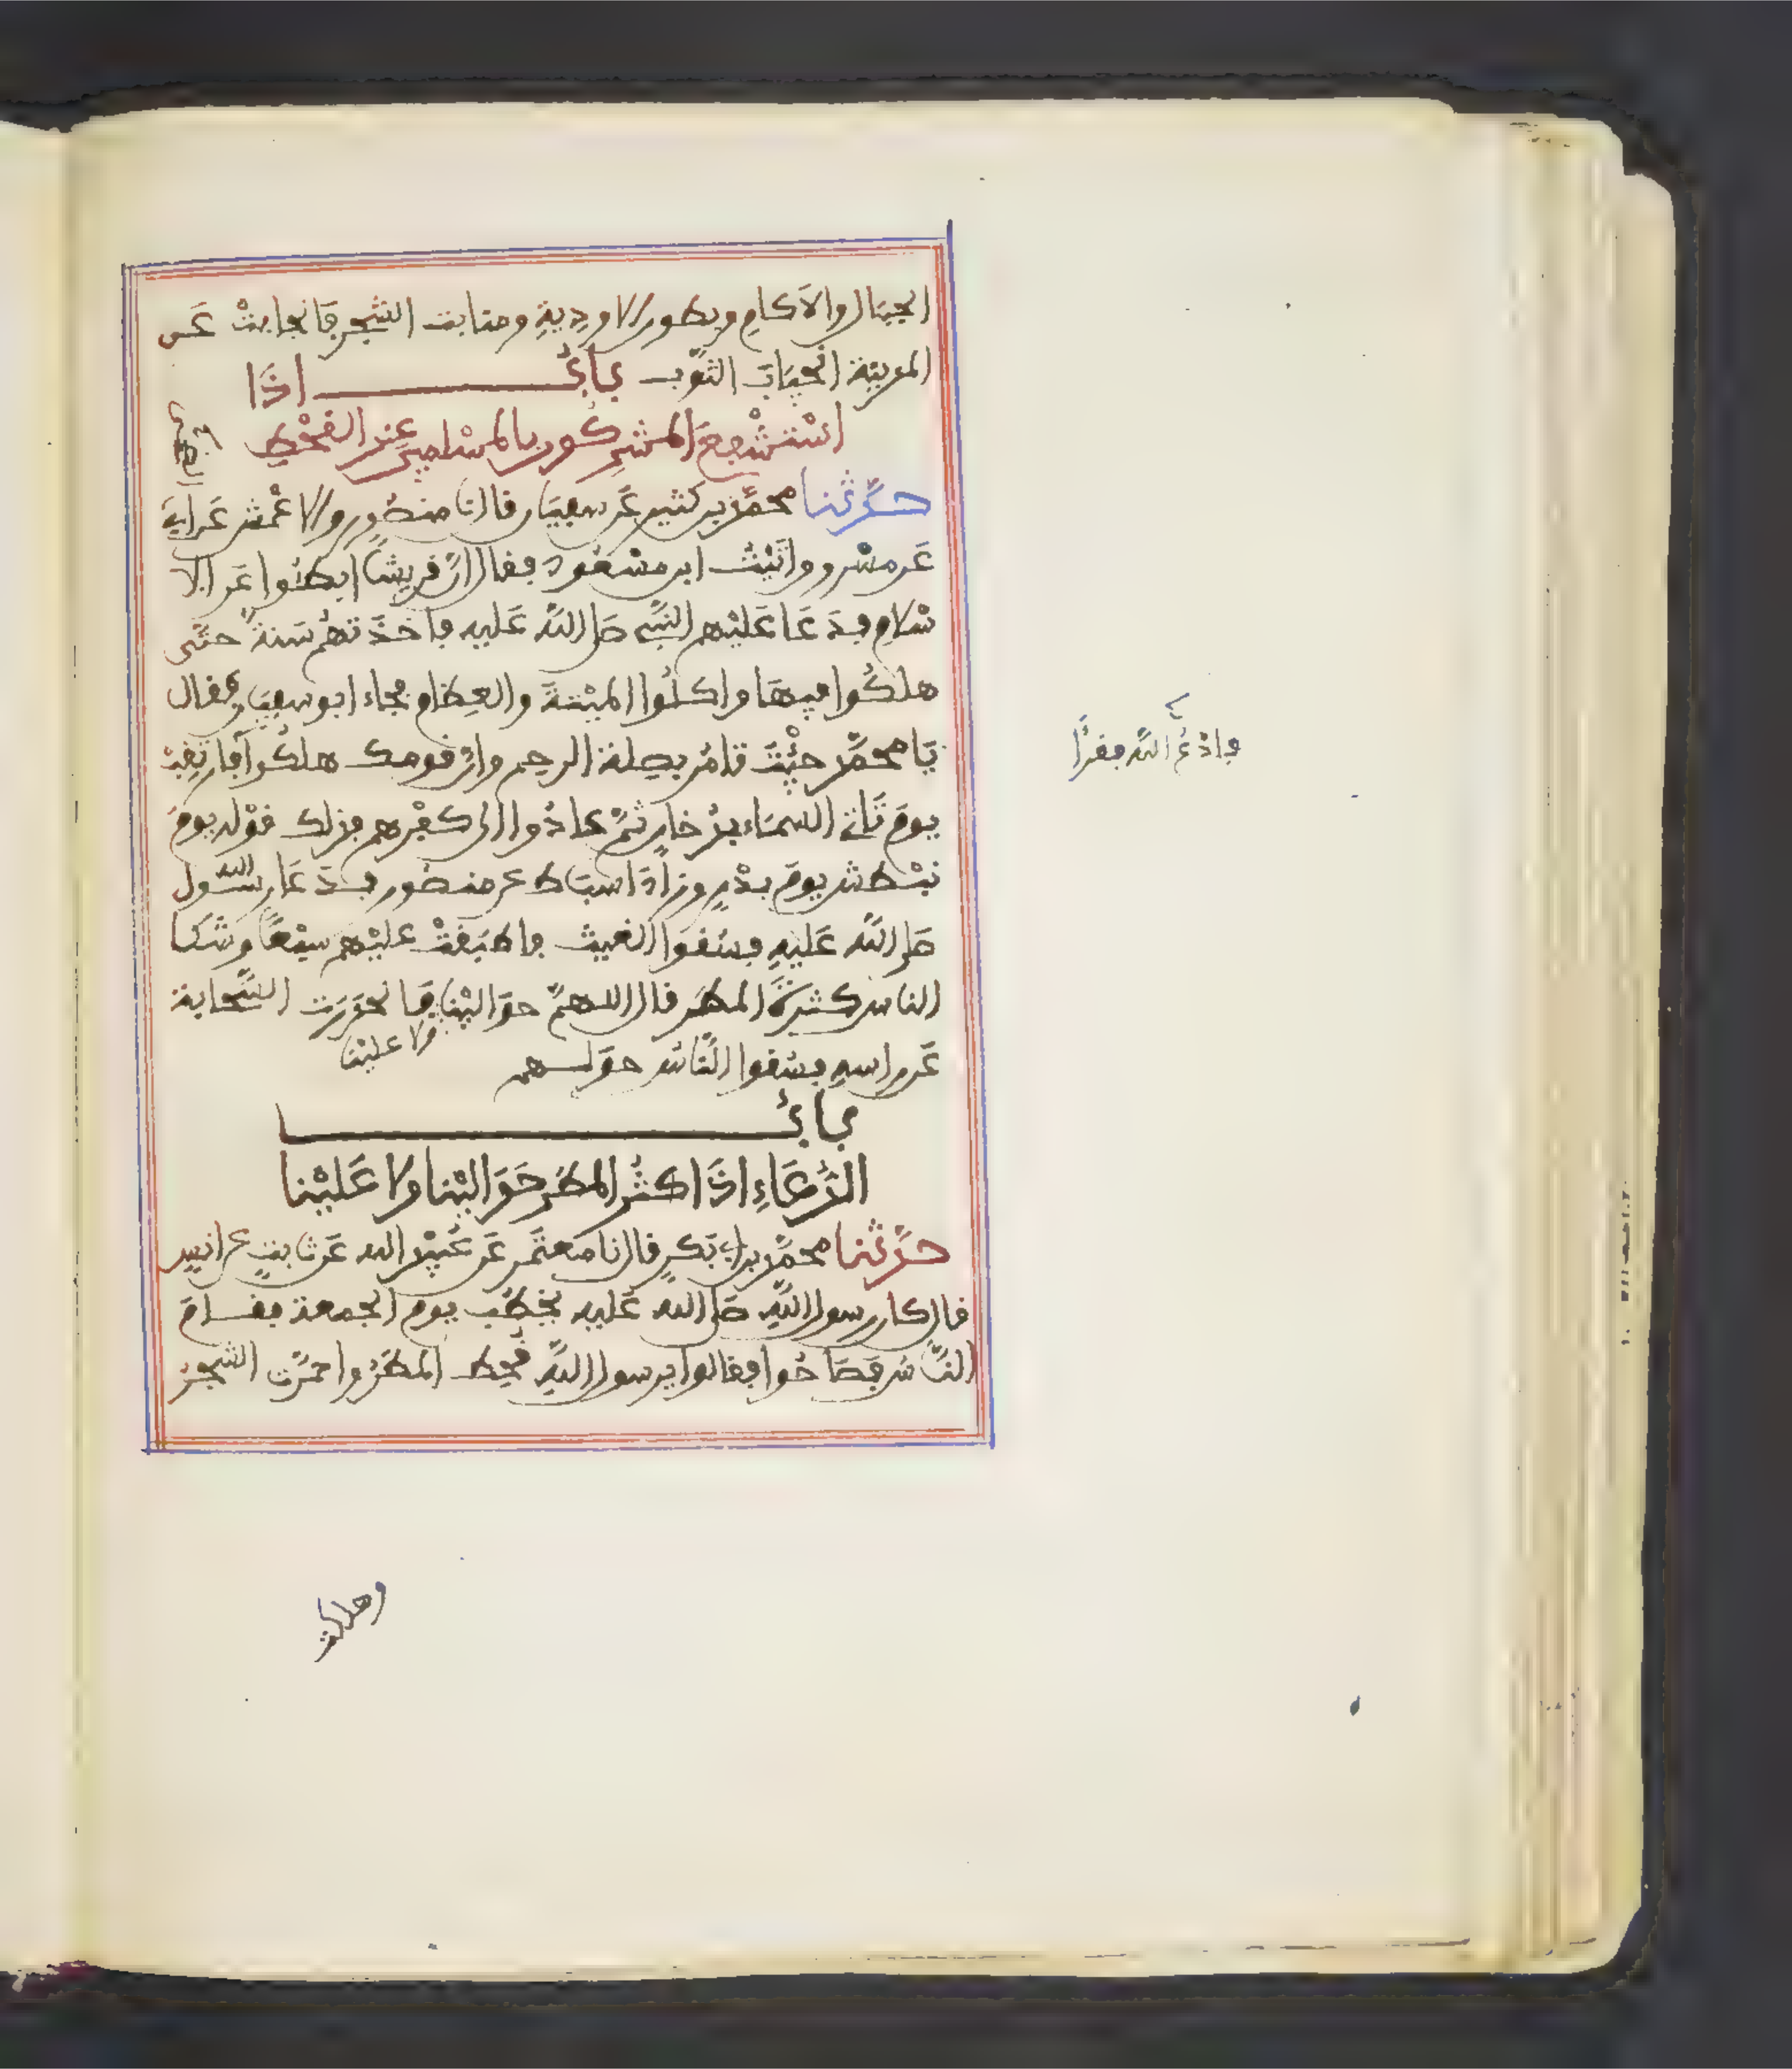 الجبال والاكام وبطون الاودية ومنابت الشجر فانجابت عن
المدينة انجياب الثوب باب اذا
استشفع المشركون بالمسلمين عند القحط
حدثنا محمد بن كثير عن سفين قال نا منصور والاعمش عن ابي
عن مسروق اتيت ابن مسعود فقال ان قريشا ابطئوا عن الا
سلام فدعا عليهم النبي صلى الله عليه فاخذتهم سنة حتى
هلكوا فيها واكلوا الميتة والعظام فجاء ابو سفين فقال
يا محمد جئت تامر بصلة الرحم وان قومك هلكوا فارتقب
يوم تاتي السماء بدخان ثم عادوا الى كفرهم فذلك قوله يوم
نبطش يوم بدر وزاد اسباط عن منصور فدعا رسول الله
صلى الله عليه فسقوا الغيث فاطبقت عليهم سبعا وشكا
الناس كثرة المطر قال اللهم حوالينا فانحدرت السحابة
ولا علينا
عن راسه فسقوا الناس حولهم
باب
الدعاء اذا كثر المطر حوالينا ولا علينا
حدثنا محمد بن ابي بكر قال نا معتمر عن عبيد الله عن ثابت عن انس
قال كان رسول الله صلى الله عليه يخطب يوم الجمعة فقام
الناس فصاحوا فقالوا يرسول الله قحط المطر واحمرت الشجر
فادع الله فقرأ
وهلكت